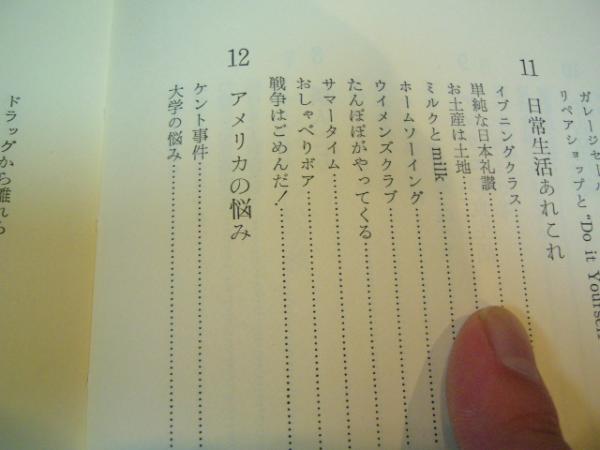 ガレージセール
リペアショップと "Do it Yourself
11 日常生活あれこれ
イブニングクラス
単純な日本礼讃
お土産は土地
ミルクと milk
ホームソーイング
ウイメンズクラブ
たんぽぽがやってくる
サマータイム
おしゃべりボア
戦争はごめんだ!
12 アメリカの悩み
ケント事件
大学の悩み
ドラッグから離れら